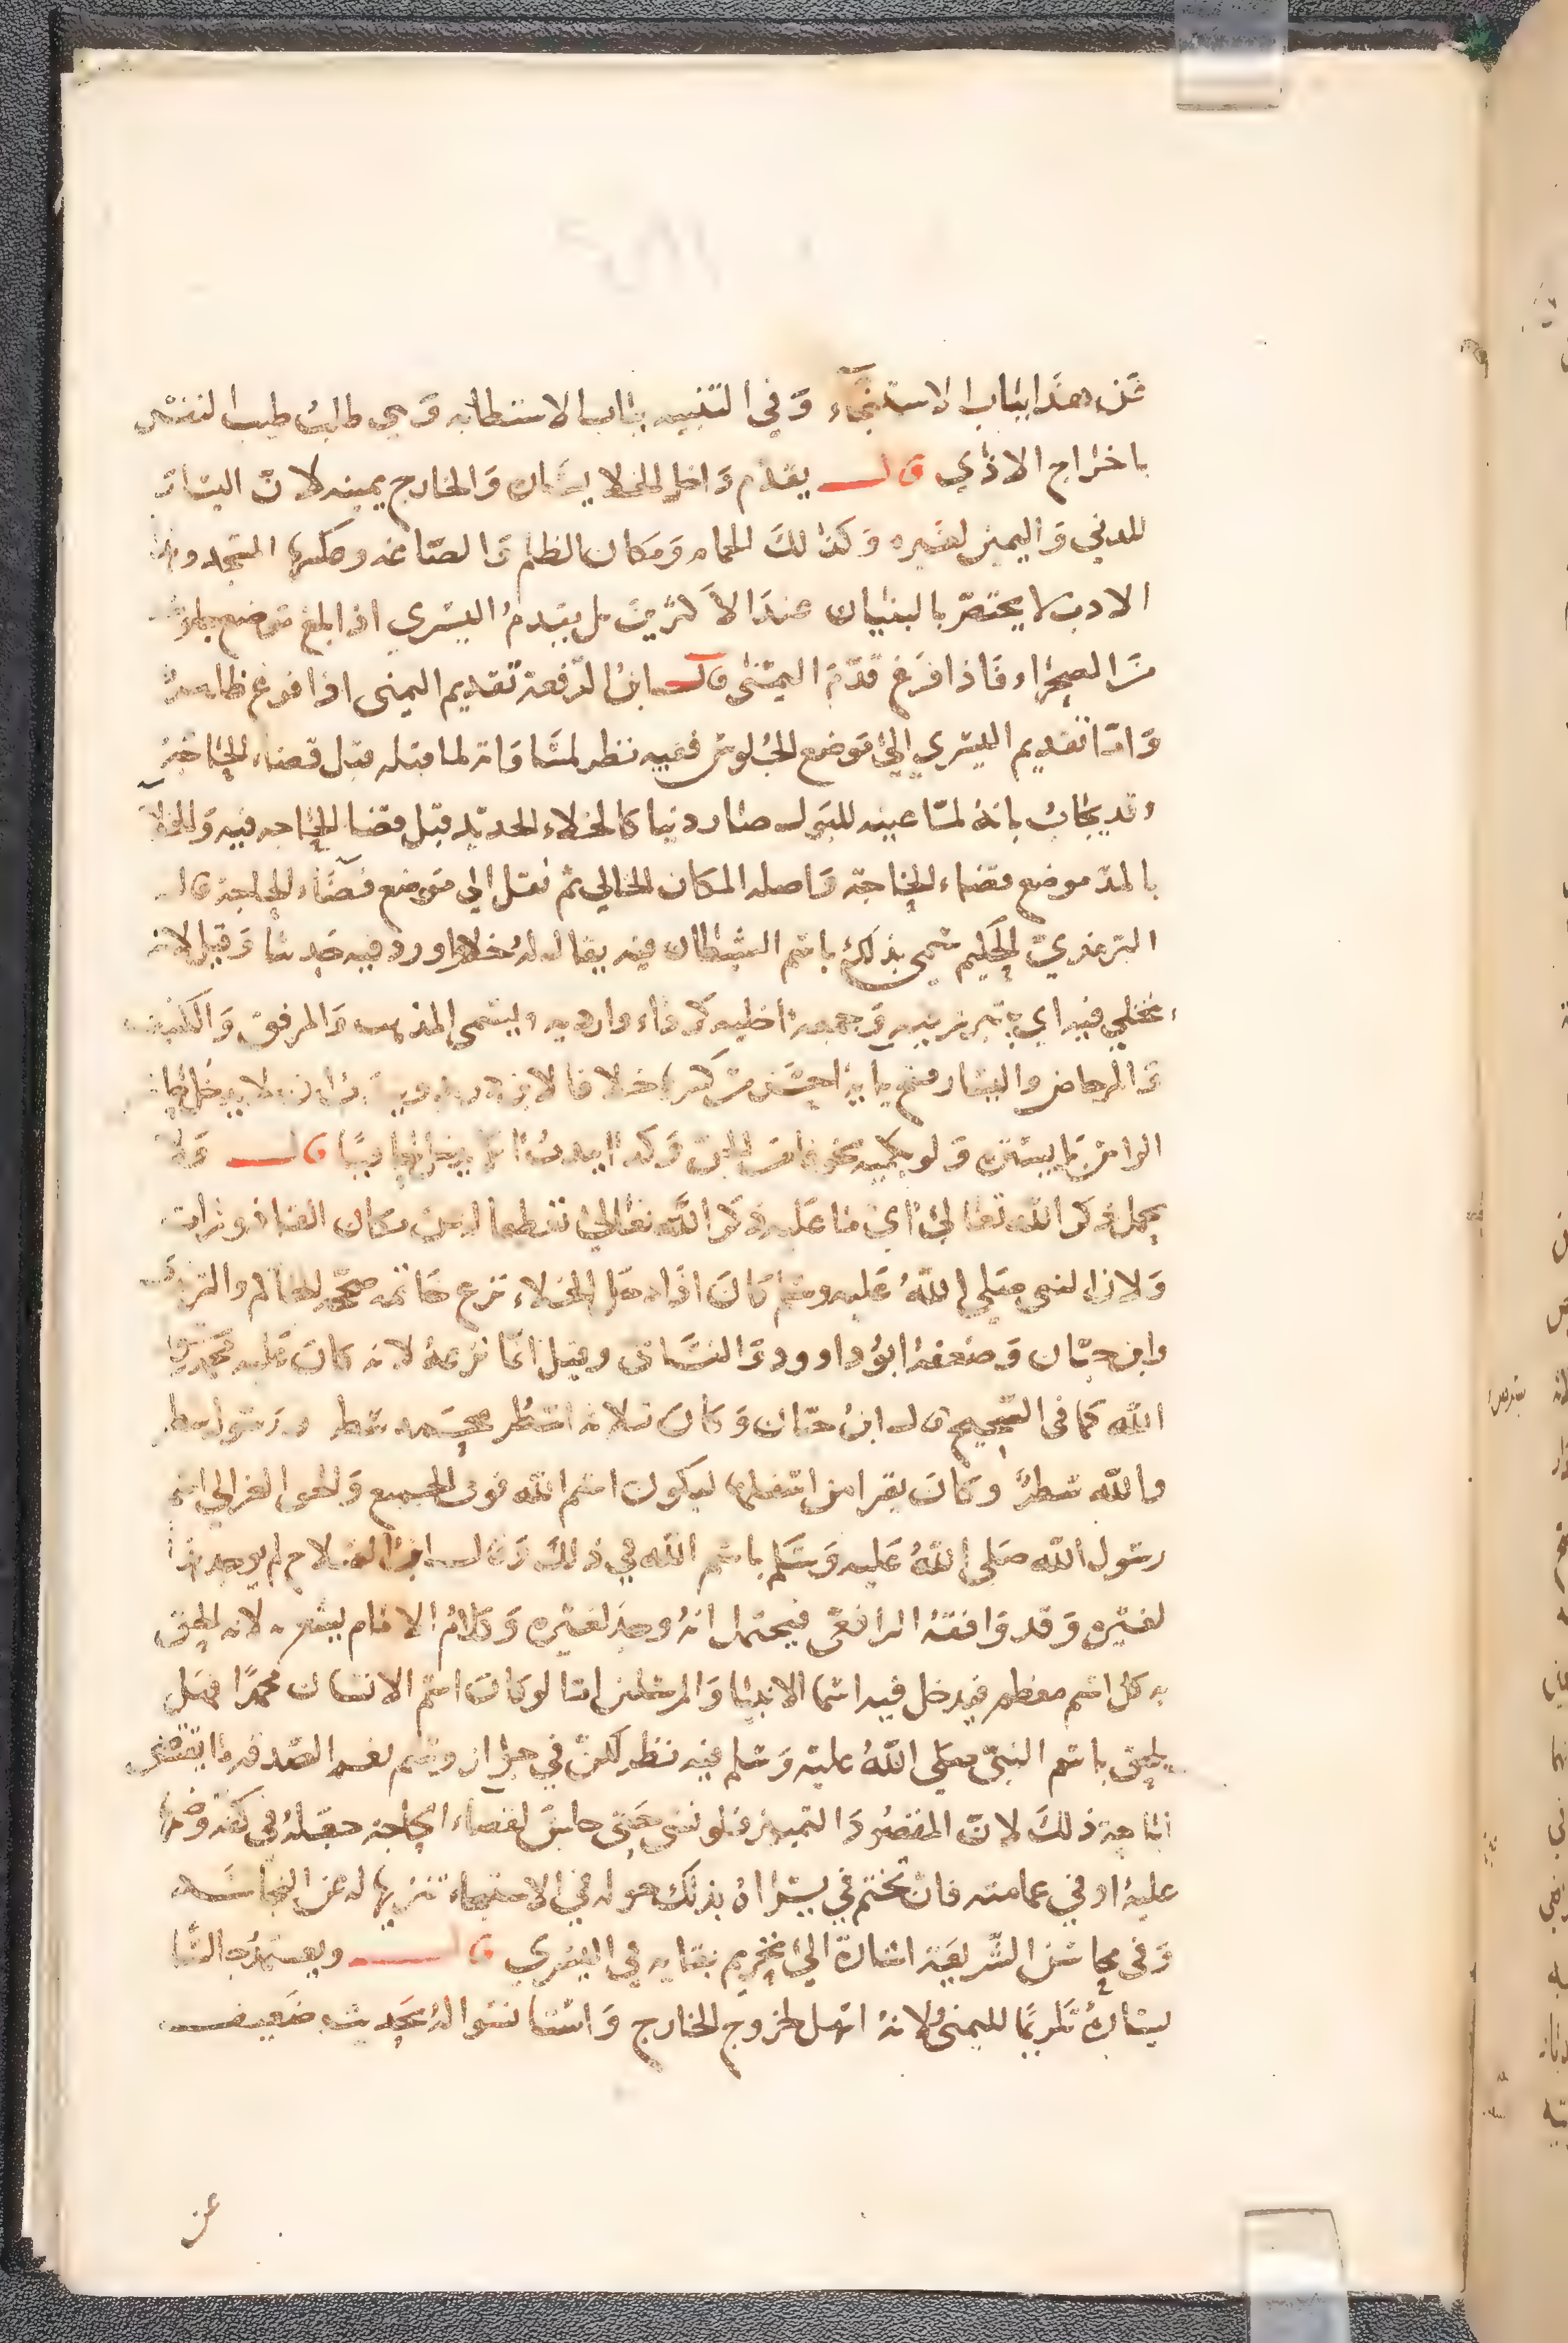 عن هذا بباب الاستنجاء وفي التنبيه بباب الاستطابه وهي طلب طيب النفس
باخراج الاذي قال يقدم داخل الخلا يساره والخارج يمينه لان اليسار
للدني واليمين لغيره وكذلك الحمام ومكان الظلم والصاغه وعكسها المسجد وهذا
الادب لا يختص بالبنيان عند الاكثرين بل يقدم اليسري اذا بلغ موضع جلوسه
من الصحراء فاذا فرغ قدم اليمنى قال ابن الرفعة تقديم اليمنى اذا فرغ ظاهر
واما تقديم اليسري الى موضع الجلوس ففيه نظر لمساواته لما قبله قبل قضاء الحاجة
وقد يجاب بانه لما عينه للبول صار دنيا كالخلاء الجديد قبل قضا الحاجه فيه والخلا
بالمد موضع قضاء الحاجة واصله المكان الخالي ثم نقل الى موضع قضاء الحاجة قال
الترمذي الحكيم سمي بذلك باسم الشيطان فيه يقال له خلا واورد فيه حديثا وقيل لانه
يتخلي فيه اي يتبرز فيه وجمعه اخليه كرداء وارديه ويسمى المذهب والمرفق والكنيف
والمرحاض واليسار فتح يايه احسن من كسرها خلافا لابن دريد
قال ولا
يحمل ذكر الله تعالى اي ما عليه ذكر الله تعالى تعظيما له عن مكان القاذورات
ولان النبي صلي الله عليه وسلم كان اذا دخل الخلاء نزع خاتمه صححه الحاكم والترمذي
وابن حبان وضعفه ابو داوود والنساى وقيل انما نزعه لانه كان عليه محمد رسول
الله كما فى الصحيح قال ابن حبان وكان ثلاثه اسطر محمد سطر ورسول سطر
والله سطر وكان يقرا من اسفلها ليكون اسم الله فوق الجميع والحق الغزالي اسم
رسول الله صلي الله عليه وسلم باسم الله في ذلك وقال ابن الصلاح لم يوجد هذا
لغيره وقد وافقه الرافعي فيحتمل انه وجد لغيره وكلام الامام يشعر به لانه الحق
به كل اسم معظم فيدخل فيه اسما الانبيا والمرسلين اما لو كان اسم الانسان محمدا فهل
يلحق باسم النبي صلي الله عليه وسلم فيه نظر لكن في جواز وسم نعم الصدقه ما يقتضى
اباحة ذلك لان المقصود التمييز فلو نسى حتى جلس لقضاء الحاجه جعله في كفه وضمها
عليه او في عمامته فان تختم في يساره بذلك حوله في الاستنجاء تنزيها له عن النجاسه
وفى محاسن الشريعة اشارة الى تحريم بقايه في اليسري قال ويعتمد جالسا
يساره تكريما لليمنى ولانه اسهل لخروج الخارج واستانسوا له بحديث ضعيف
عن